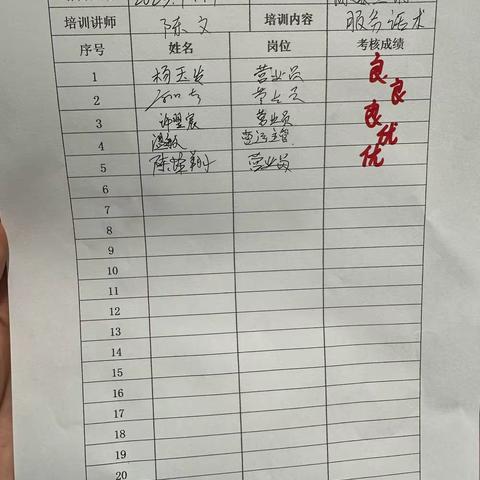 培训讲师 陈文 培训内容 服务话术
序号 姓名 岗位 考核成绩
1 杨玉发 营业员 良
2 营业员 良
3 许盟宸 营业员 良
4 营运主管 优
5 营业员 优
6
7
8
9
10
11
12
13
14
15
16
17
18
19
20